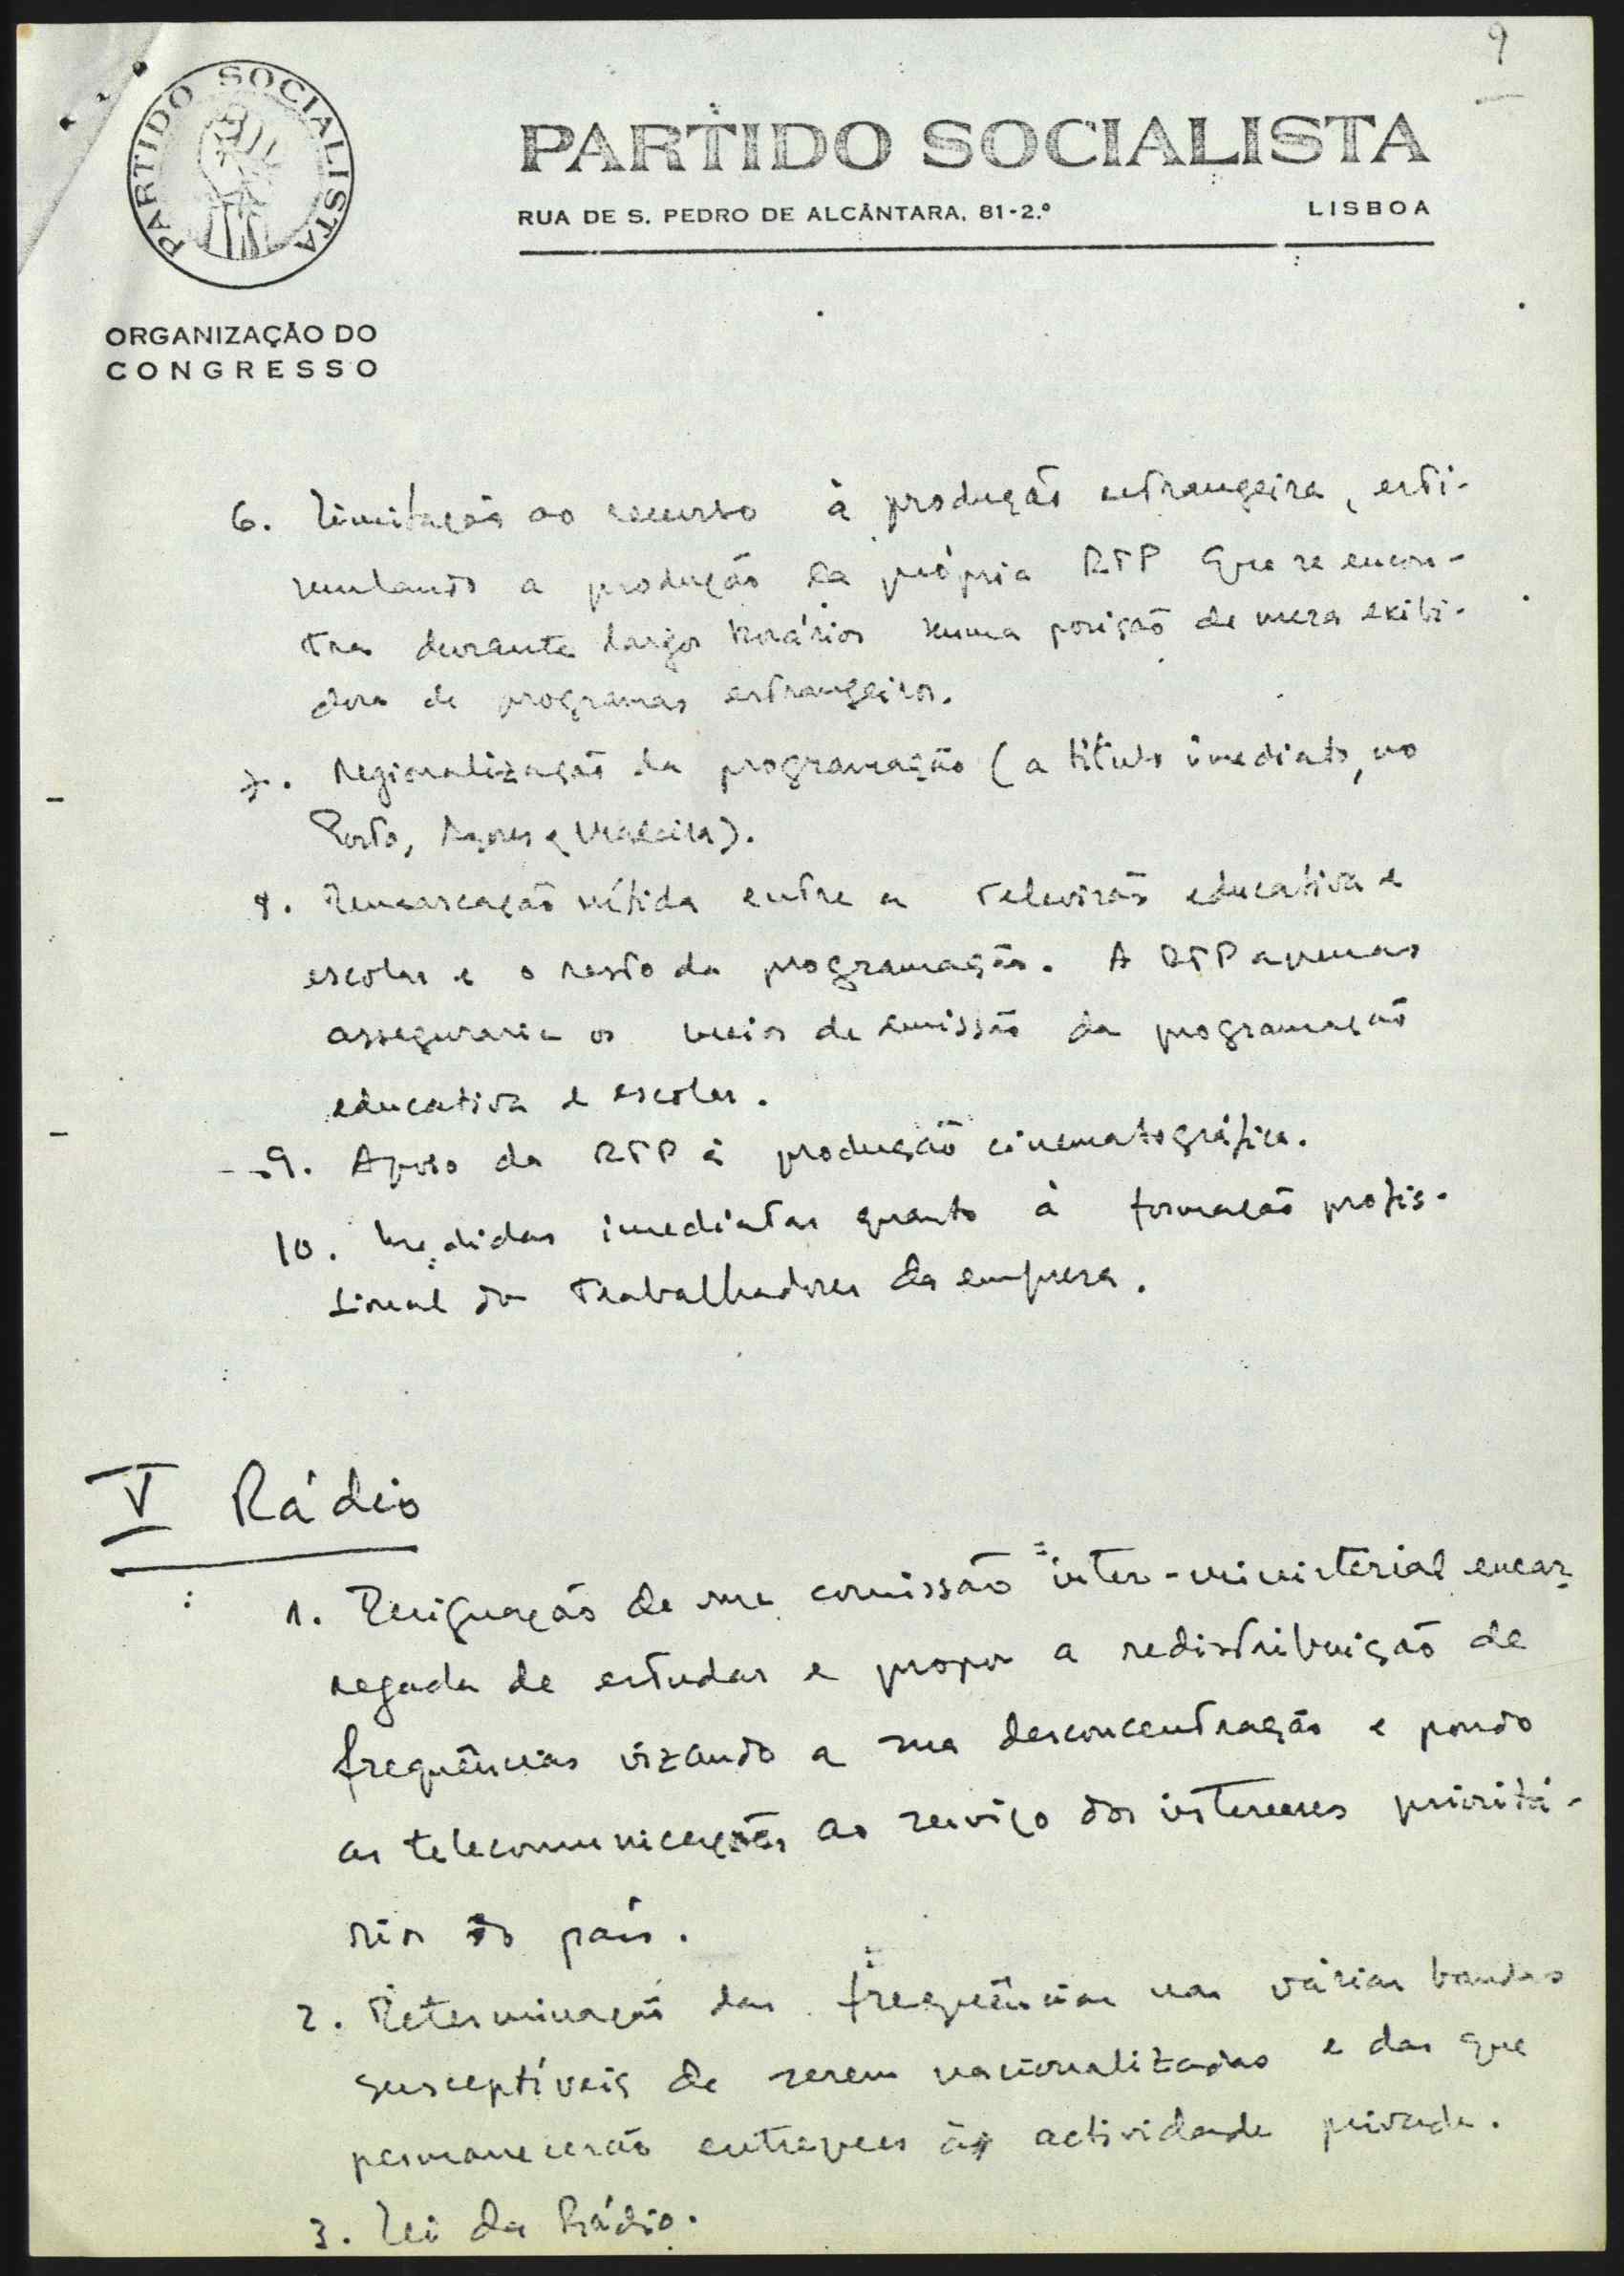 9
PARTIDO SOCIALISTA
PARTIDO SOCIALISTA
RUA DE S. PEDRO DE ALCÂNTARA, 81-2.º LISBOA
ORGANIZAÇÃO DO
CONGRESSO
6. Limitação ao recurso à produção estrangeira, esti-
mulando a produção da própria RTP que se encon-
tra durante largos horários numa posição de mera exibi-
dora de programas estrangeiros.
7. Regionalização da programação (a título imediato, no
Porto, Açores e Madeira).
8. Demarcação nítida entre a televisão educativa e
escolar e o resto da programação. A RTP apenas
asseguraria os meios de emissão da programação
educativa e escolar.
9. Apoio da RTP à produção cinematográfica.
10. Medidas imediatas quanto à formação profis-
sional dos trabalhadores da empresa.
V Rádio
1. Designação de uma comissão inter-ministerial encar-
regada de estudar e propor a redistribuição de
frequências vizando a sua desconcentração e pondo
as telecomunicações ao serviço dos interesses prioritá-
rios do país.
2. Determinação das frequências nas várias bandas
susceptíveis de serem nacionalizadas e das que
permanecerão entregues à actividade privada.
3. Lei da Rádio.